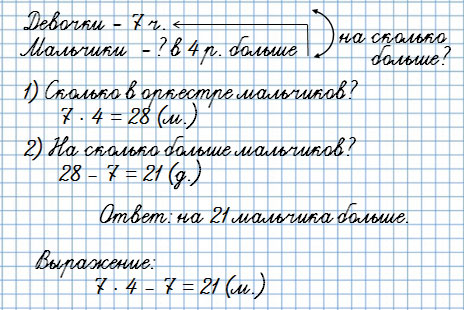 Девочки – 7 ч.
Мальчики – ? в 4 р. больше
на сколько
больше?
1) Сколько в оркестре мальчиков?
7 · 4 = 28 (м.)
2) На сколько больше мальчиков?
28 – 7 = 21 (д.)
Ответ: на 21 мальчика больше.
Выражение:
7 · 4 – 7 = 21 (м.)